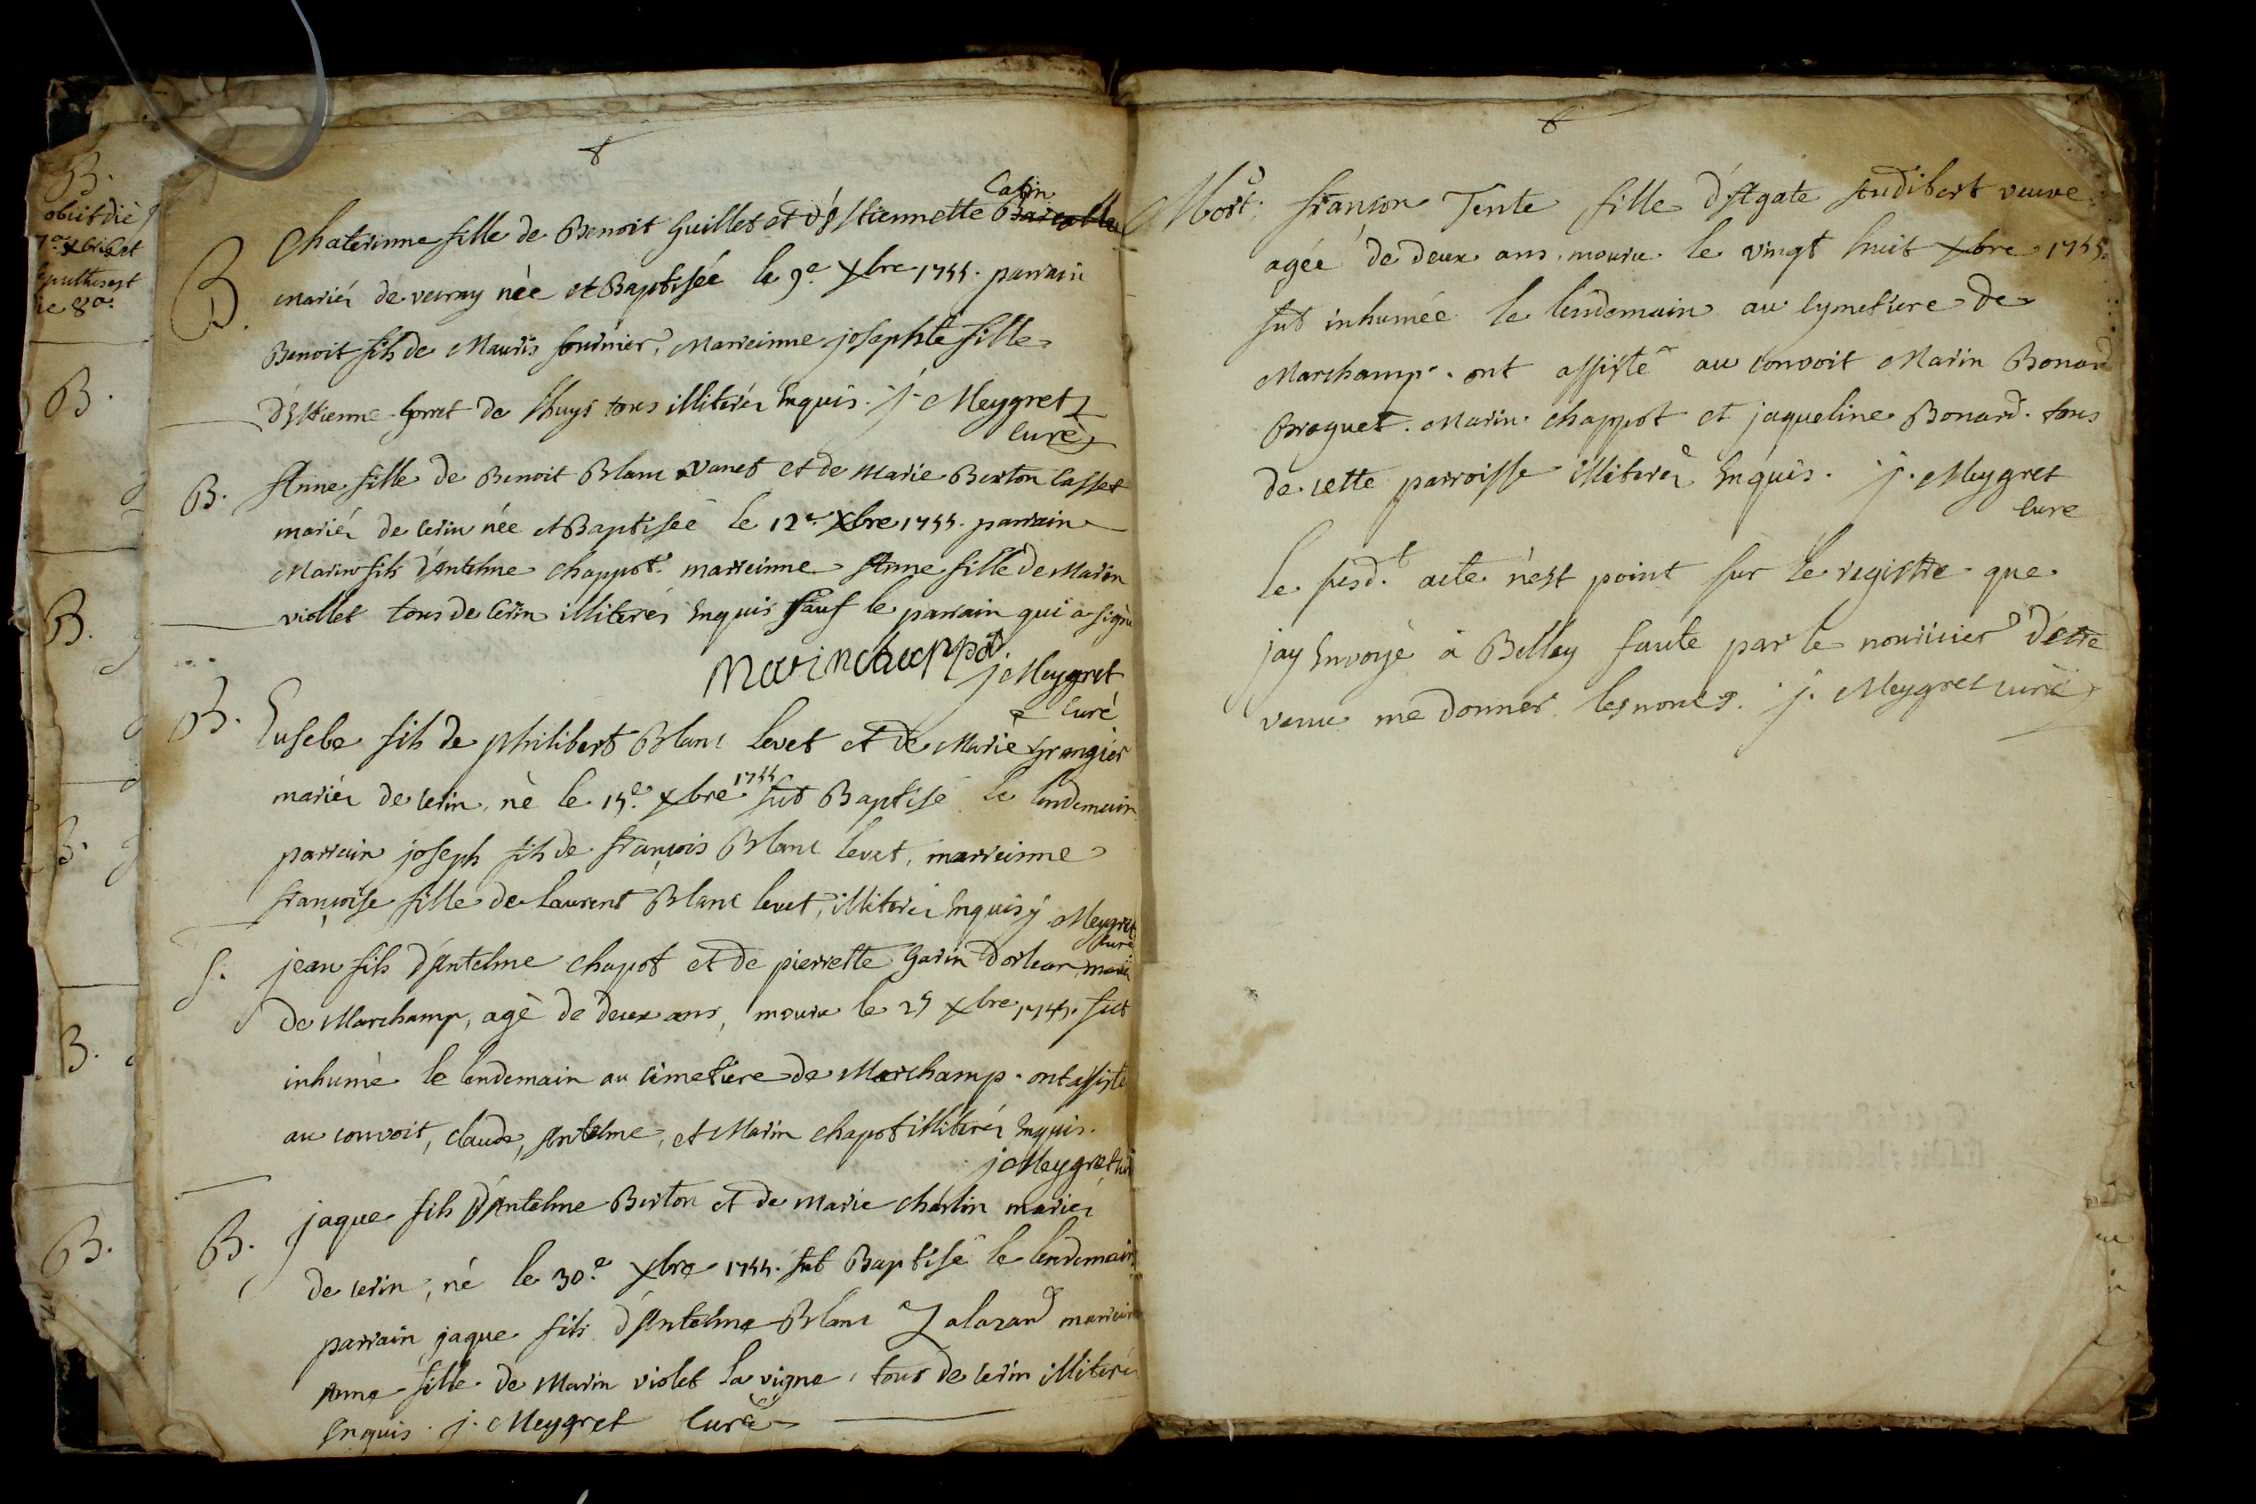 B.
obiit die
7a xbris et
sepultus est
die 8a.
B.
B.
B.
B.
B.
Catin
B. Chaterinne fille de Benoit Guillet et d'Estiennette
mariés de veiray née et Baptisée le 9e xbre 1755. parrain
Benoit fils de Mauris fournier, Marreinne josephte fille
d'Estienne Gorret de Thuys tous illiterés Enquis. j. Meygret
curé
B. Anne fille de Benoit Blanc vanet et de Marie Berton Casset
mariés de cerin née et Baptisée le 12e xbre 1755. parrain
Marin fils d'Antelme chappot. marreinne Anne fille de Marin
viollet tous de Cerin illiterés Enquis sauf le parrain qui a signé
marin chappot
j. Meygret
curé
B. Eusebe fils de philibert Blanc Levet et de Marie Grangier
1755
mariés de cerin, né le 15e xbre fut Baptisé le lendemain
parrain joseph fils de françois Blanc levet, marreinne
françoise fille de Laurent Blanc levet, illiterés Enquis j Meygret
curé
S. jean fils d'Antelme chapot et de pierrette Garin Dorlean, mariés
de Marchamp, agé de deux ans, mouru le 25 xbre 1755. fut
inhumé le lendemain au cimetiere de Marchamp. ont assisté
au convoit, claude, Antelme, et Marin chapot illiterés Enquis.
j Meygret curé
B. jaque fils d'Antelme Berton et de Marie charlin mariés
de cerin, né le 30e xbre 1755. fut Baptisé le lendemain
parrain jaque fils d'Antelme Blanc Lalazard marreinne
Anne fille de Marin violet La vigne, tous de cerin illiterés
Enquis. j. Meygret Curé
Mort. françon Tente fille d'Agate Audibert veuve
agée de deux ans, mouru le vingt huit xbre 1755.
fut inhumée le lendemain au cymetiere de
Marchamp. ont assisté au convoit Marin Bonard
Broguet. Marin chappot et jaqueline Bonard. tous
de cette parroisse illiterés Enquis. j. Meygret
curé
le susd.t acte n'est point sur le registre que
jay Envoyé à Belley faute par le nouricier d'etre
venu me donner les noms. j. Meygret curé